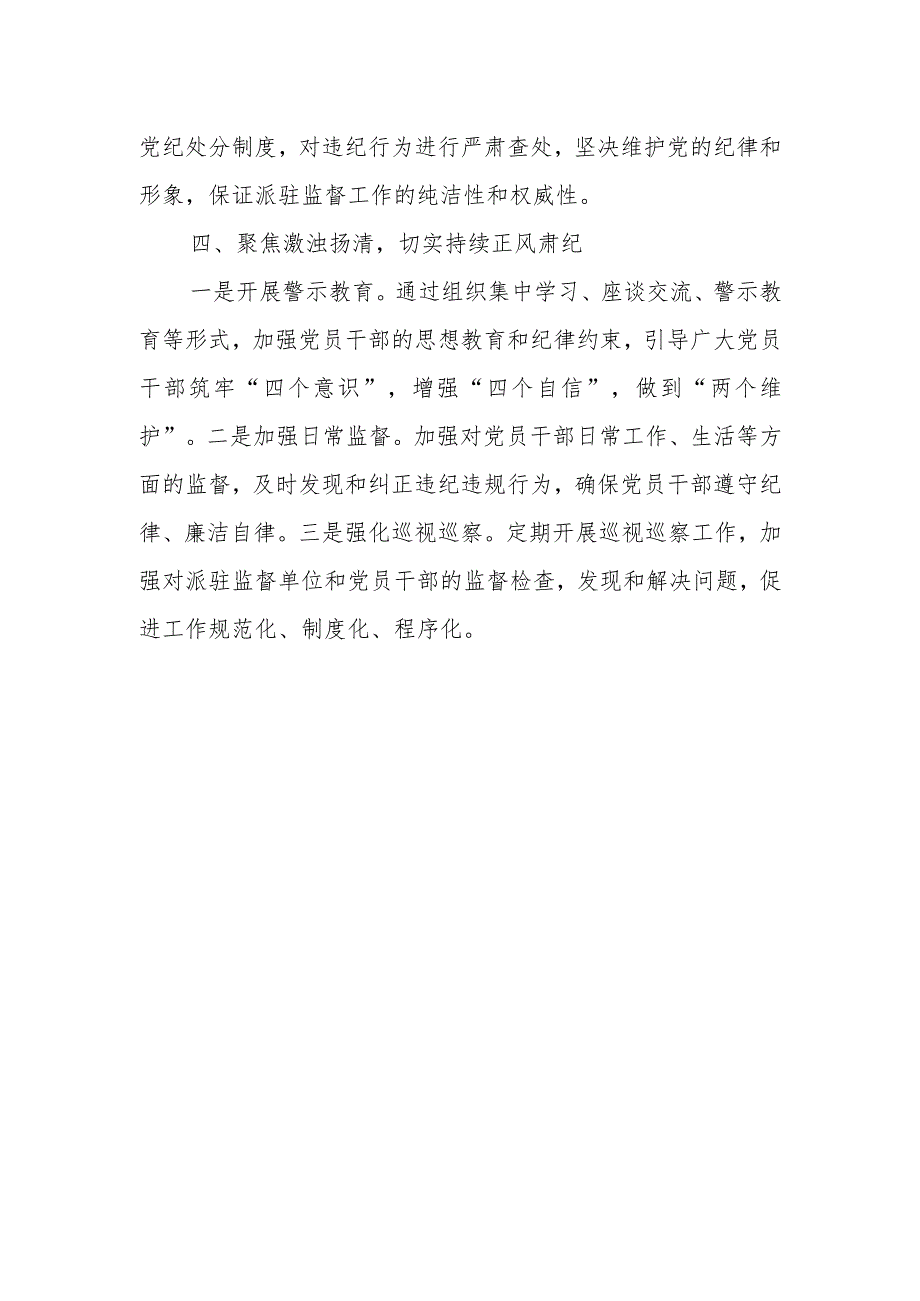 党纪处分制度，对违纪行为进行严肃查处，坚决维护党的纪律和
形象，保证派驻监督工作的纯洁性和权威性。
四、聚焦激浊扬清，切实持续正风肃纪
一是开展警示教育。通过组织集中学习、座谈交流、警示教
育等形式，加强党员干部的思想教育和纪律约束，引导广大党员
干部筑牢“四个意识”，增强“四个自信”，做到“两个维
护”。二是加强日常监督。加强对党员干部日常工作、生活等方
面的监督，及时发现和纠正违纪违规行为，确保党员干部遵守纪
律、廉洁自律。三是强化巡视巡察。定期开展巡视巡察工作，加
强对派驻监督单位和党员干部的监督检查，发现和解决问题，促
进工作规范化、制度化、程序化。